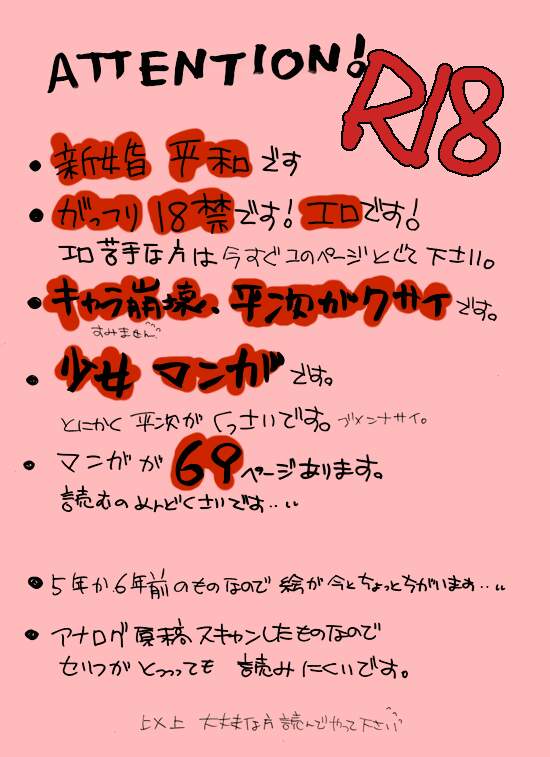 ATTENTION!
R18
• 新婚 平和です
• がっつり18禁です!エロです!
エロ苦手な方は今すぐこのページとじて下さい。
• キャラ崩壊、平次がクサイです。
すみません
• 少女マンガです。
とにかく平次がくっさいです。ゴメンナサイ。
• マンガが69ページあります。
読むのめんどくさいです‥
• 5年か6年前のものなので絵が今とちょっとちがいます‥
• アナログ原稿スキャンしたものなので
セリフがとっっっても 読みにくいです。
以上 大丈夫な方読んでやって下さい